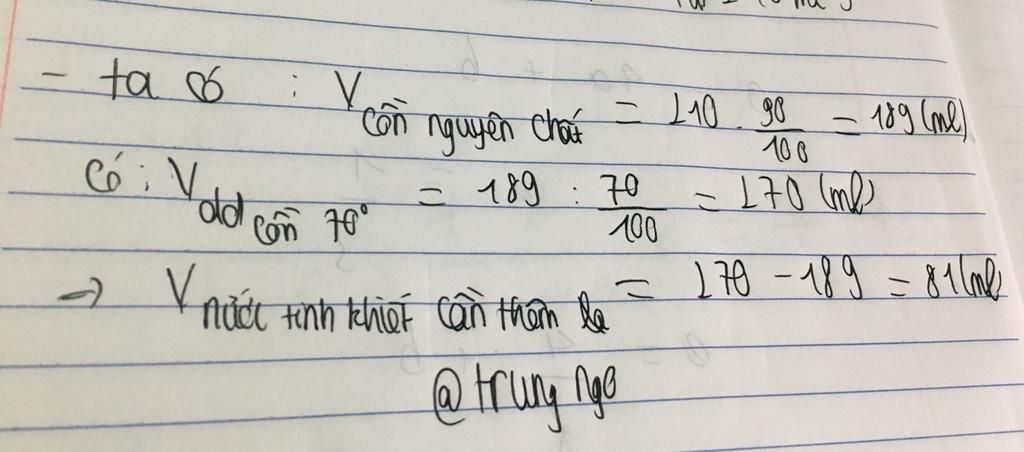 - ta có : V cồn nguyên chất = 210 . 90/100 = 189 (ml)
Có : V dd cồn 70° = 189 : 70/100 = 270 (ml)
→ V nước tinh khiết cần thêm là = 270 - 189 = 81 (ml)
@trung ngo